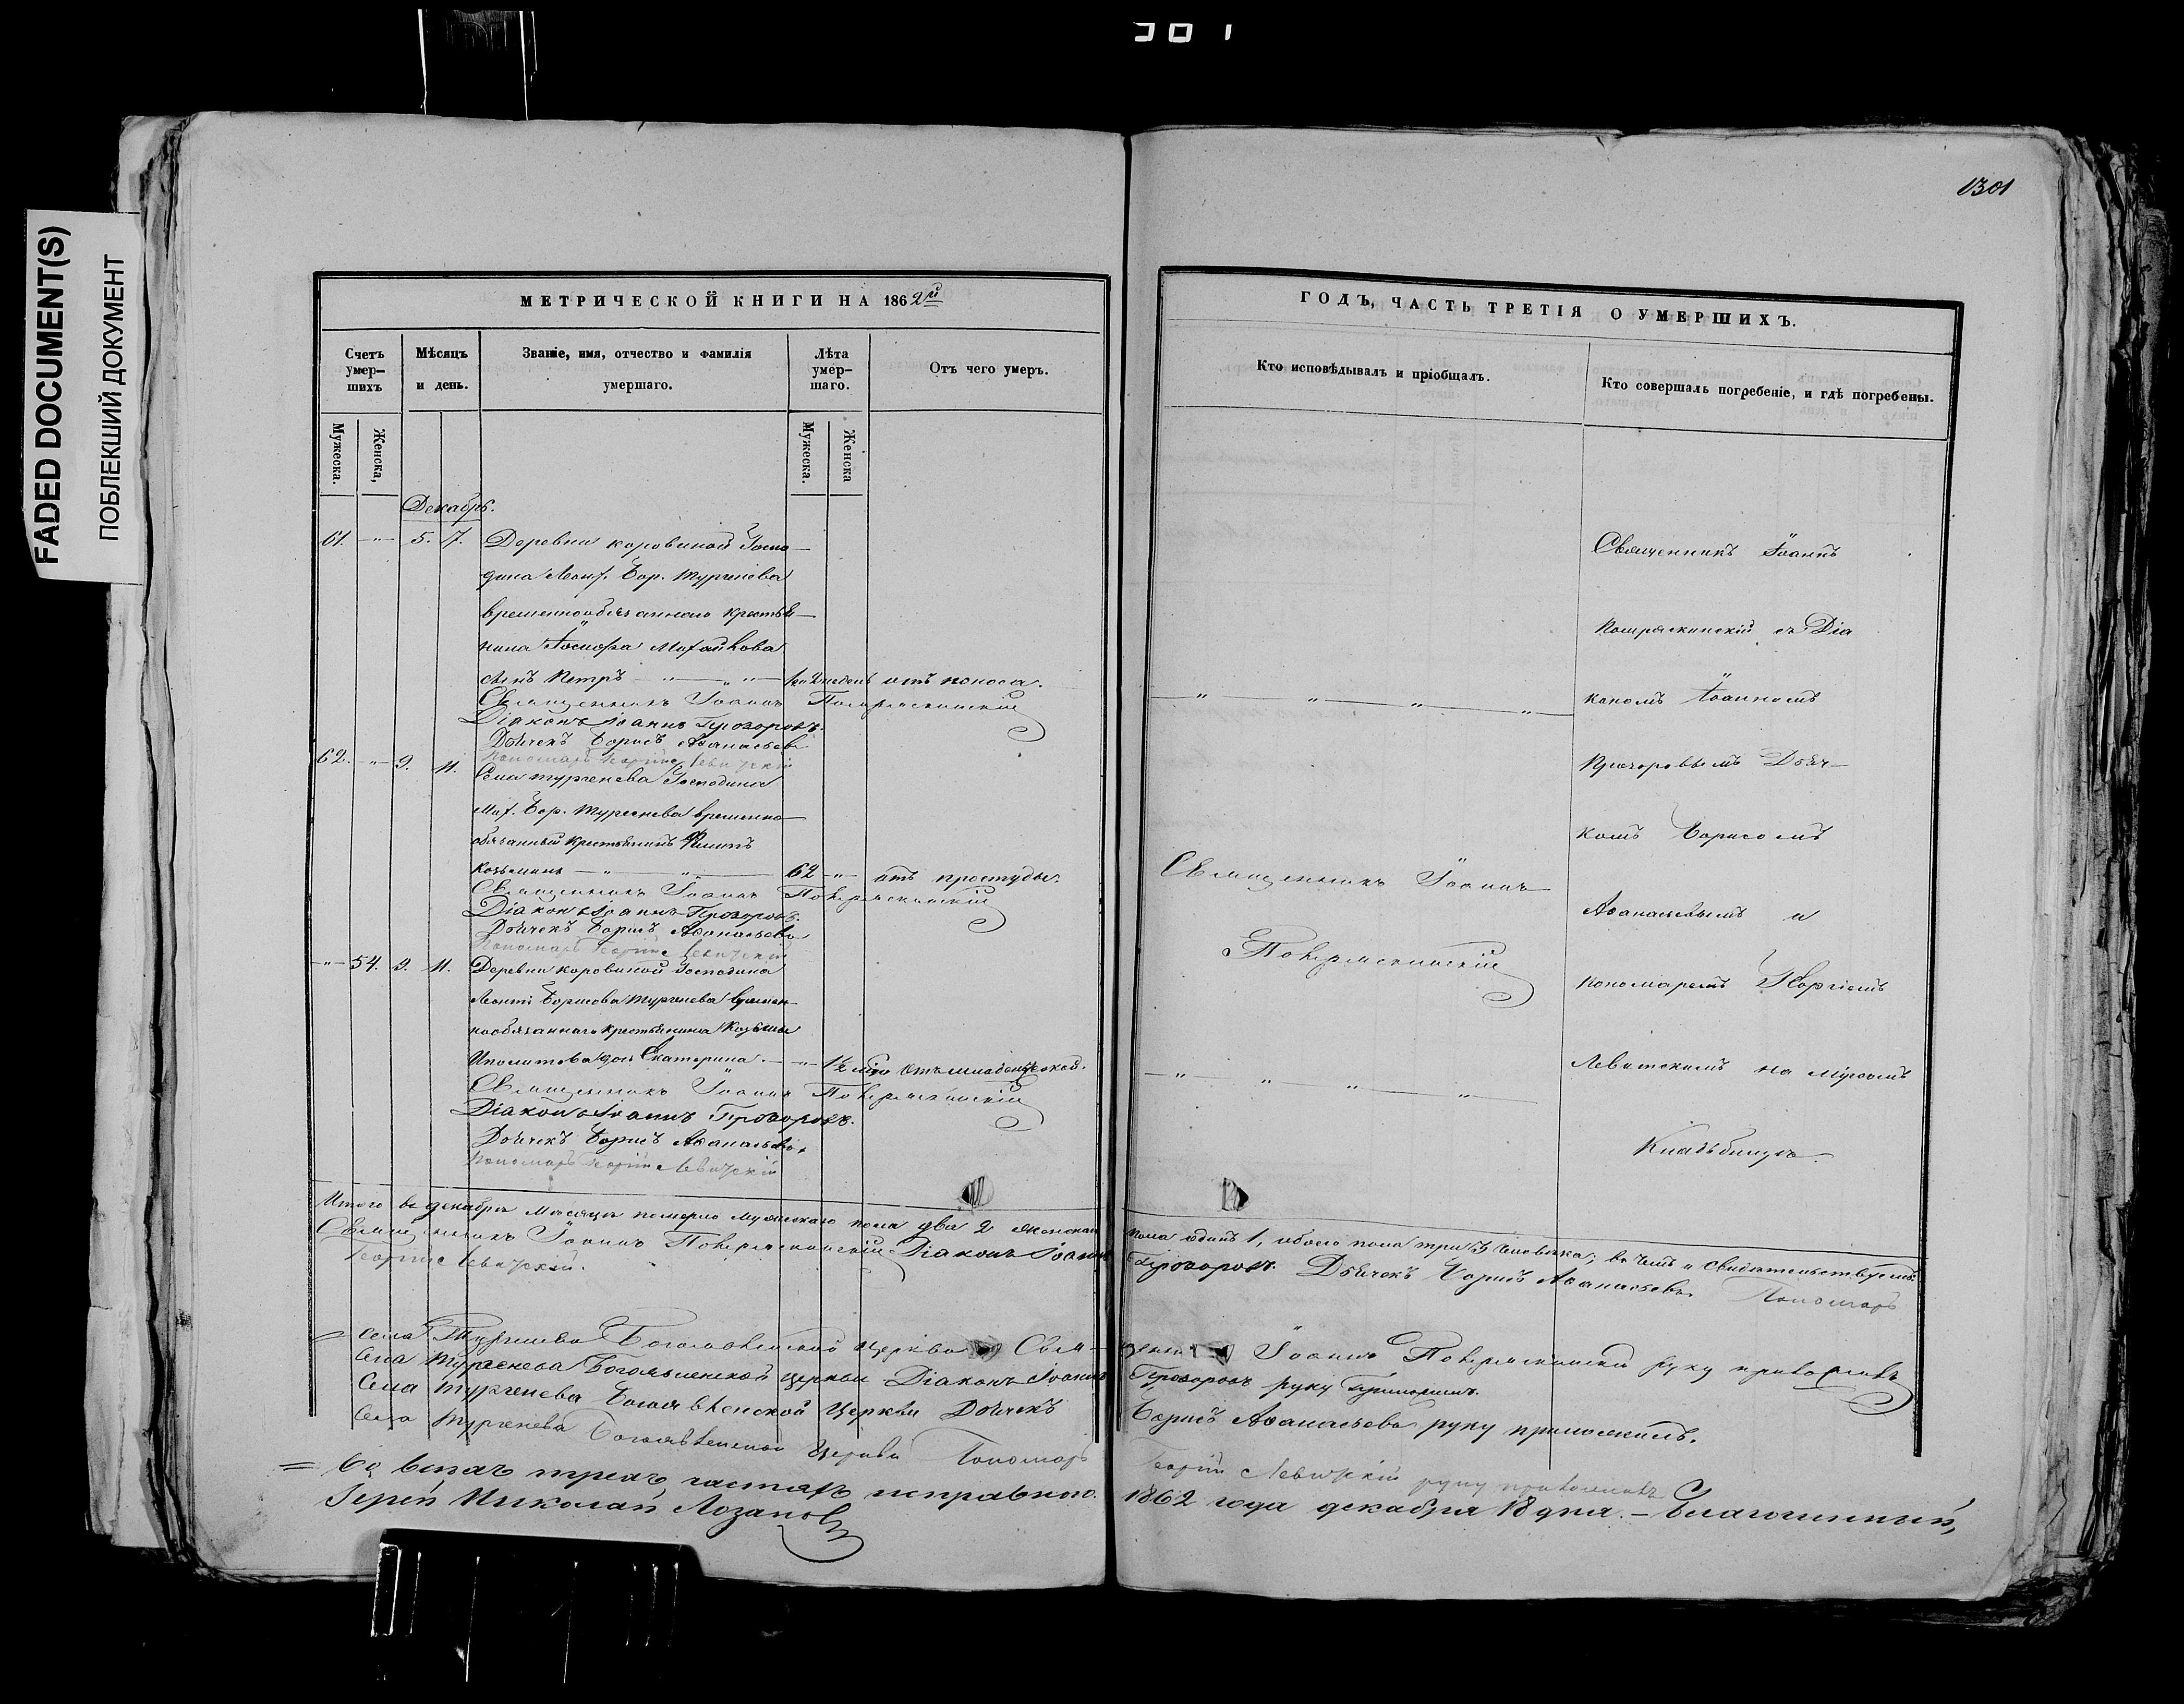 1301
FADED DOCUMENT(S)
ПОБЛЕКШИЙ ДОКУМЕНТ
МЕТРИЧЕСКОЙ КНИГИ НА 1862й
Счетъ умер-шихъ
Мѣсяцъ и день.
Званіе, имя, отчество и фамилія умершаго.
Лѣта умер-шаго.
Отъ чего умеръ.
Мужеска.
Женска,
Мужеска.
Женска
Декабрь.
61. -„- 5. 7. Деревни Коровиной Госпо-
дина Леонт. Бор. Тургенева
временнообязаннаго крестья-
нина Іосифа
сынъ Петръ недель отъ поноса.
Священникъ Іоаннъ
Діаконъ Іоаннъ Прозоровъ.
Дьячекъ Борисъ Аѳанасьевъ
Пономарь Георгій Левитскій
62. -„- 9. 11. Села Тургенева Господина
Бор. Тургенева временно-
обязанный крестьянинъ
Козьминъ -„- 62 -„- отъ простуды.
Священникъ Іоаннъ
Діаконъ Іоаннъ Прозоровъ.
Дьячекъ Борисъ Аѳанасьевъ
Пономарь Георгій Левитскій
-„- 54. 9. 11. Деревни Коровиной Господина
Леонтія Борисова Тургенева времен-
нообязаннаго крестьянина Козьмы
Иполитова дочь Екатерина. -„- 1½ отъ младенческой.
Священникъ Іоаннъ
Діаконъ Іоаннъ Прозоровъ.
Дьячекъ Борисъ Аѳанасьевъ,
Пономарь Георгій Левитскій
ГОДЪ, ЧАСТЬ ТРЕТІЯ О УМЕРШИХЪ.
Кто исповѣдывалъ и пріобщалъ.
Кто совершалъ погребеніе, и гдѣ погребены.
Священникъ Іоаннъ
Священникъ Іоаннъ
съ Діа
кономъ Іоанномъ
Прозоровымъ Дьяч-
комъ Борисомъ
Аѳанасьевымъ и
пономаремъ Георгіемъ
Левитскимъ на мірскомъ
Кладбищѣ.
Итого въ декабрѣ месяцѣ померло мужескаго пола два 2 женскаго пола одинъ 1, обоего пола три 3 человѣка; въ чемъ и свидѣтельствуемъ:
Священникъ Іоаннъ Діаконъ Іоаннъ Прозоровъ. Дьячекъ Борисъ Аѳанасьевъ. Пономарь
Георгій Левитскій.
Села Тургенева Богоявленской церкви Священникъ Іоаннъ руку приложилъ
Села Тургенева Богоявленской церкви Діаконъ Іоаннъ Прозоровъ руку приложилъ.
Села Тургенева Богоявленской Церкви Дьячекъ Борисъ Аѳанасьевъ руку приложилъ.
Села Тургенева Богоявленской Церкви Пономарь Георгій Левитскій руку приложилъ
= Во всехъ трехъ частяхъ исправною. 1862 года декабря 18 дня. - Благочинный,
Іерей Николай Лозановъ